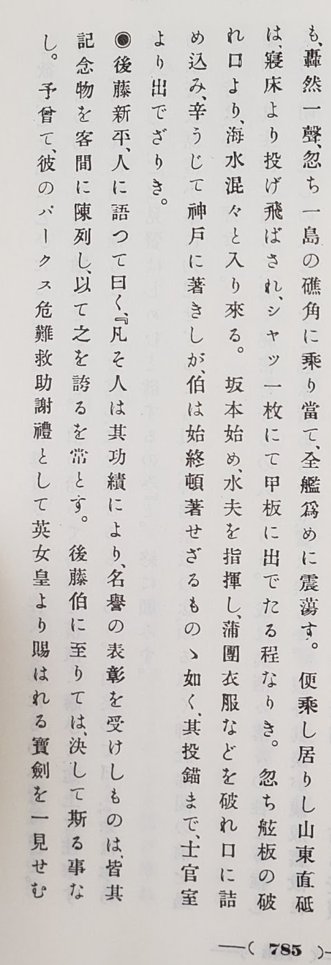 も、轟然一聲、忽ち一島の礁角に乘り當て、全艦爲めに震蕩す。便乘し居りし山東直砥
は、寢床より投げ飛ばされ、シャツ一枚にて甲板に出でたる程なりき。忽ち舷板の破
れ口より、海水混々と入り來る。坂本始め、水夫を指揮し、蒲團衣服などを破れ口に詰
め込み、辛うじて神戸に著きしが、伯は始終頓著せざるものゝ如く、其投錨まで、士官室
より出でざりき。
◉後藤新平、人に語つて曰く、『凡そ人は其功績により、名譽の表彰を受けしものは、皆其
記念物を客間に陳列し、以て之を誇るを常とす。後藤伯に至りては、決して斯る事な
し。予曾て、彼のパークス危難救助謝禮として英女皇より賜はれる寶劍を一見せむ
(785)